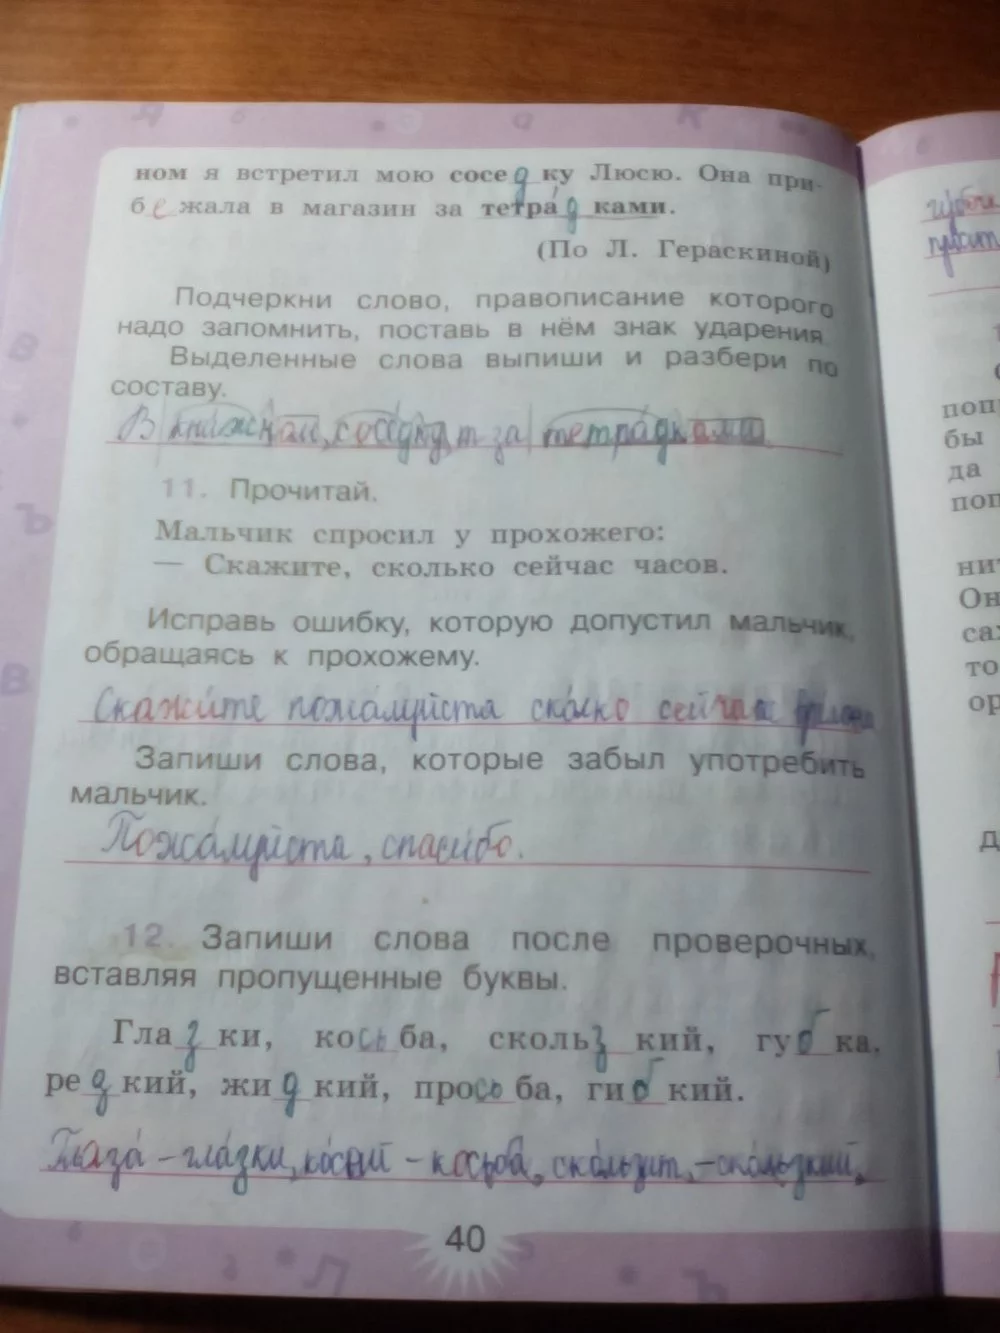 ном я встретил мою соседку Люсю. Она при-
бежала в магазин за тетрадками.
(По Л. Гераскиной)
Подчеркни слово, правописание которого
надо запомнить, поставь в нём знак ударения.
Выделенные слова выпиши и разбери по
составу.
В книжном, соседку, за тетрадками
11. Прочитай.
Мальчик спросил у прохожего:
— Скажите, сколько сейчас часов.
Исправь ошибку, которую допустил мальчик,
обращаясь к прохожему.
Скажите пожалуйста сколко сейчас
Запиши слова, которые забыл употребить
мальчик.
Пожалуйста, спасибо.
12. Запиши слова после проверочных,
вставляя пропущенные буквы.
Глазки, косьба, скользкий, губка,
редкий, жидкий, просьба, гибкий.
Глаза – глазки, – косьба, скользит, – скользкий,
40
поп
бы
да
поп
ни
Он
са
то
ор
д